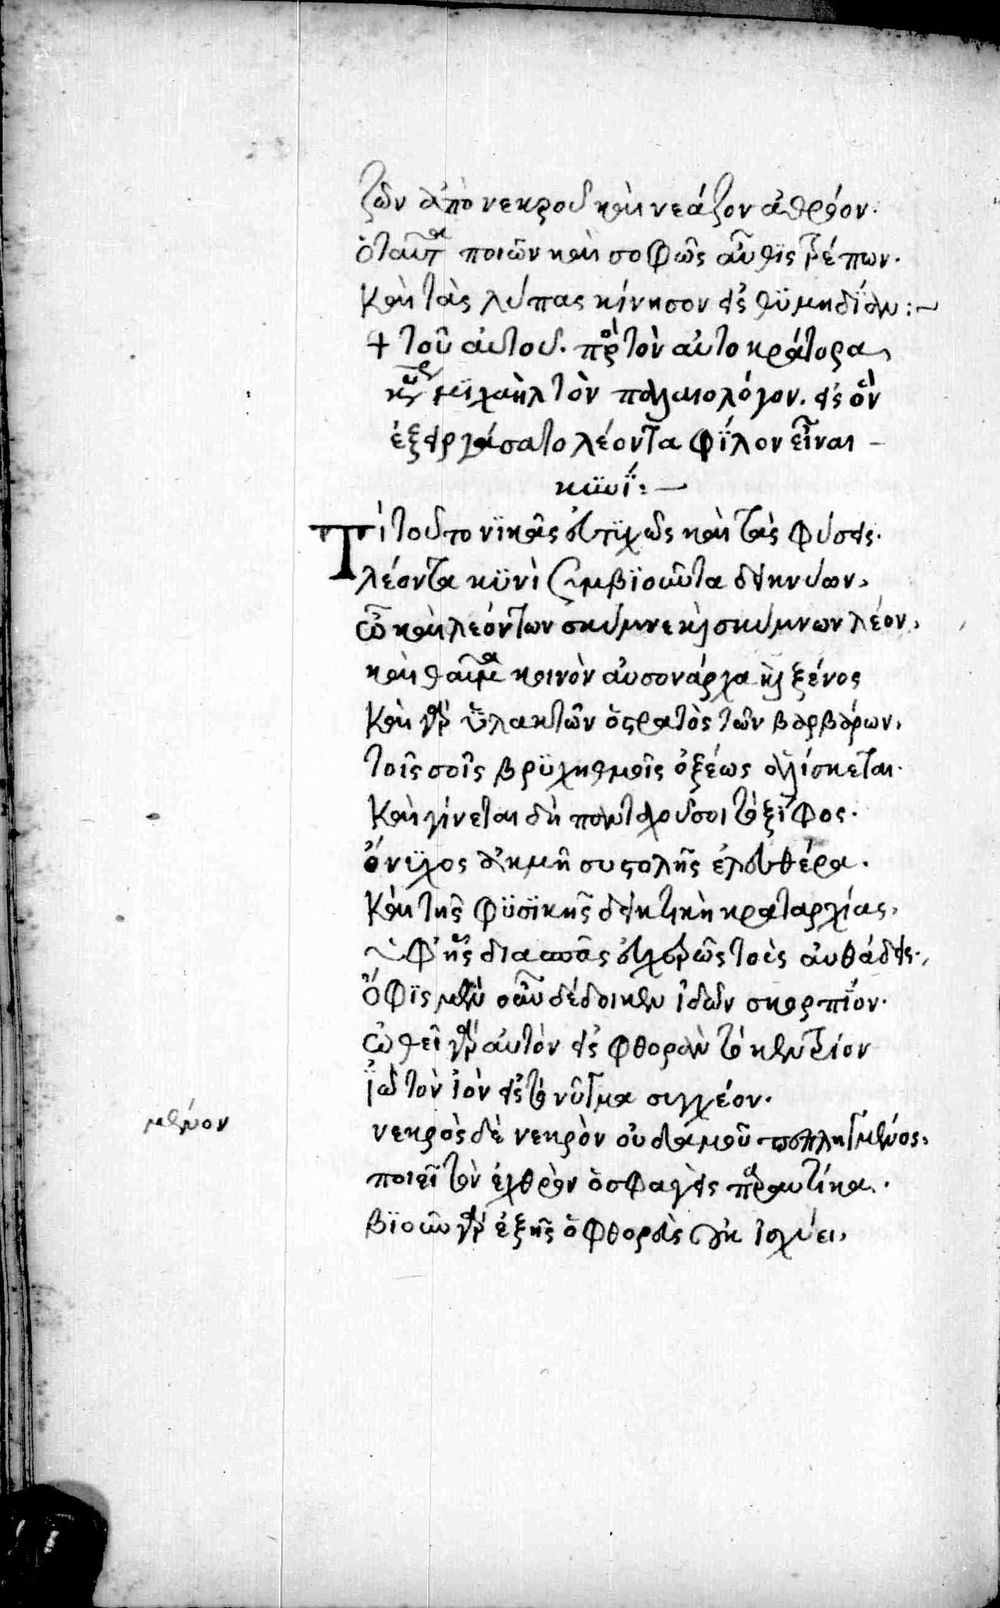 ζῶν ἀπὸ νεκροῦ καὶ νεάζον ἀθρόον.
ὁ ταῦτα ποιῶν καὶ σοφῶς αὖθϊς τρέπων.
Καὶ τὰς λύπας κίνησον εἰς θϋμηδΐαν :~
+ τοῦ αὐτοῦ. πρὸς τὸν αὐτοκράτορα
κῦρ μϊχαὴλ τὸν παλαιολόγον. εἰς ὃν
ἐξειργάσατο λέοντα φΐλον εἶναι –
κϋνΐ: —
Τί τοῦτο νϊκᾶς εὐτϋχῶς καὶ τὰς φύσεις.
λέοντα κϋνὶ συμβϊοῦντα δεικνύων.
ὦ καὶ λεόντων σκύμνε καὶ σκύμνων λέον.
καὶ θαῦμα κοινὸν αὐσονάρχα καὶ ξένος
Καὶ γὰρ ὑλακτῶν ὁ στρατὸς τῶν βαρβάρων.
τοῖς σοῖς βρϋχηθμοῖς ὀξέως ἁλίσκεται.
Καὶ γίνεται δὴ πανταχοῦ σοι τὸ ξΐφος.
ὄνϋχος ἀκμὴ συστολῆς ἐλευθέρα.
Καὶ τῆς φϋσϊκῆς δεικτικὴ κραταρχίας.
διασπᾶς εὐχερῶς τοὺς αὐθάδεις.
Ὄφϊς μὲν οὖν δέδοικεν ἰδὼν σκορπΐον.
ὠθεῖ γὰρ αὐτὸν εἰς φθορὰν τὸ κεντρίον
ϊὸν τὸν ἰὸν εἰς τὸ νῦγμα συγχέον.
μένον
νεκρὸς δὲ νεκρὸν οὐδαμοῦ πεπληγμένος.
ποιεῖ τὸν ἐχθρὸν ὁ σφαγεὶς παραυτίκα.
βϊοῦν γὰρ ἑξῆς ὁ φθορεὺς οὐκ ἰσχύει.